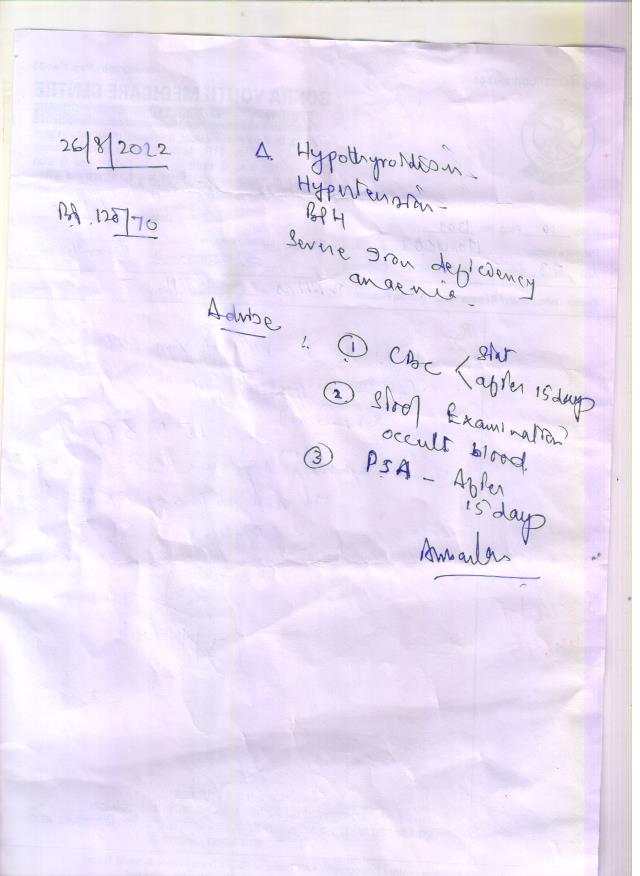 26/8/2022
Δ. Hypothyroidism
Hypertension
BP. 128/70
BPH
Severe Iron deficiency
anaemia.
Advise
① CBC < Stat
after 15 days
② Stool Examination
occult blood
③ PSA - After
15 days